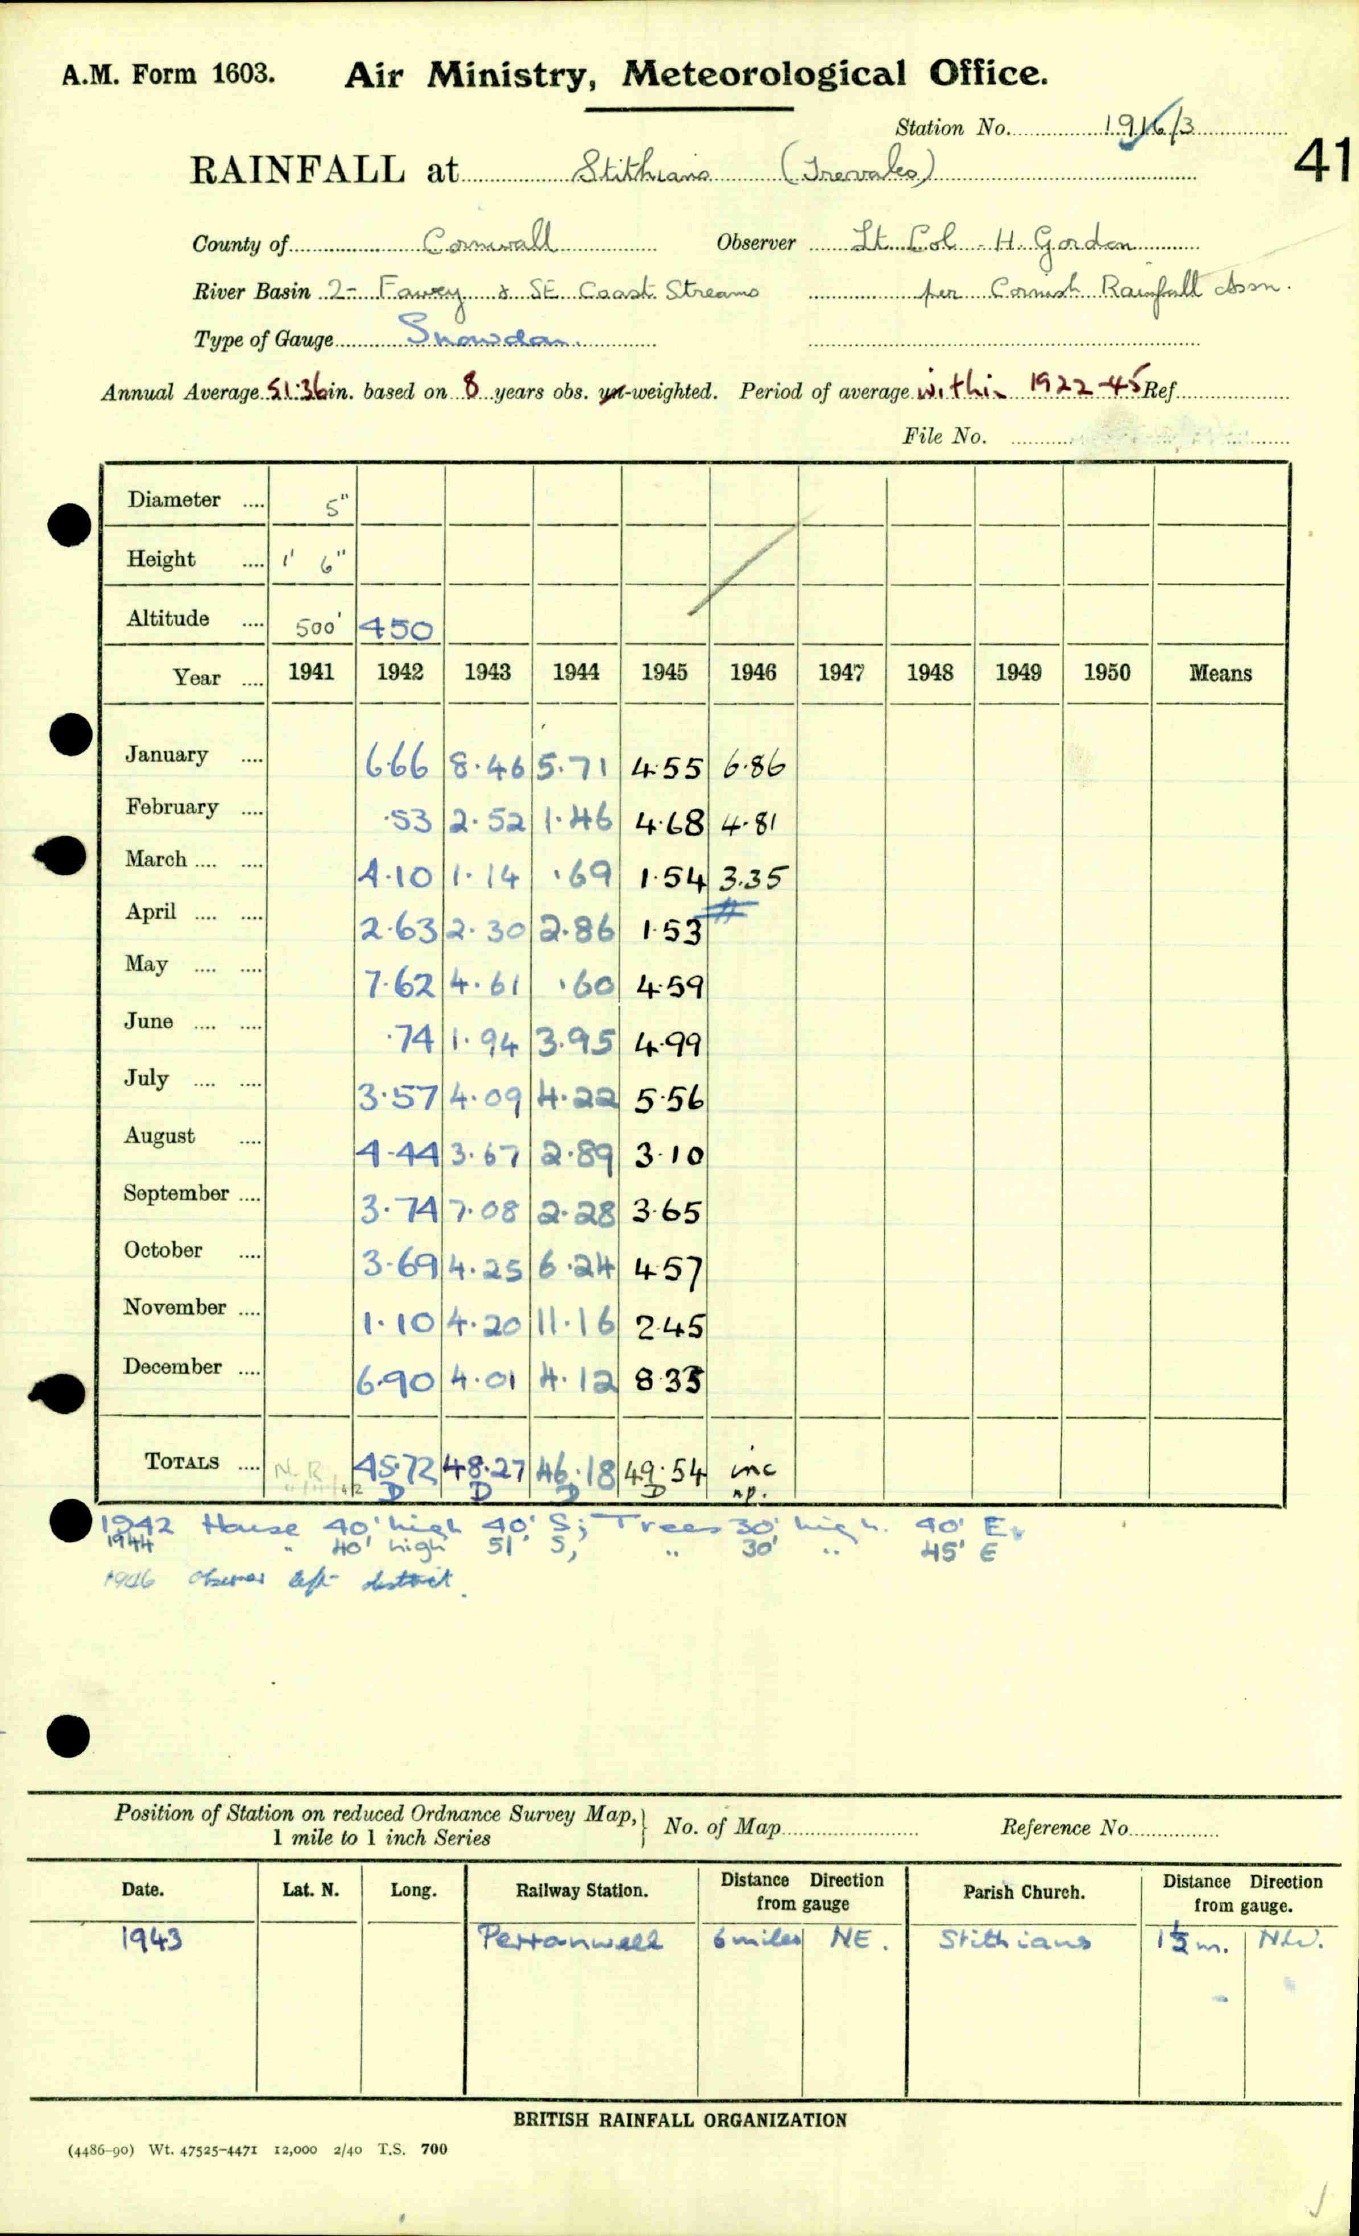 A.M. Form 1603. Air Ministry, Meteorological Office.
Station No. 1916/3
41
RAINFALL at Stithians (Trevales)
County of Cornwall Observer Lt. Col. H. Gordon
River Basin 2- Fowey & SE Coast Streams per Cornish Rainfall Assn.
Type of Gauge Snowdon.
Annual Average 51.36 in. based on 8 years obs. un-weighted. Period of average within 1922-45 Ref
File No.
Diameter .... 5"
Height .... 1' 6"
Altitude .... 500' 450
Year .... 1941 1942 1943 1944 1945 1946 1947 1948 1949 1950 Means
January .... 6.66 8.46 5.71 4.55 6.86
February .... .53 2.52 1.46 4.68 4.81
March .... .... 4.10 1.14 .69 1.54 3.35
April .... .... 2.63 2.30 2.86 1.53
May .... .... 7.62 4.61 .60 4.59
June .... .... .74 1.94 3.95 4.99
July .... .... 3.57 4.09 4.22 5.56
August .... 4.44 3.67 2.89 3.10
September .... 3.74 7.08 2.28 3.65
October .... 3.69 4.25 6.24 4.57
November .... 1.10 4.20 11.16 2.45
December .... 6.90 4.01 4.12 8.33
TOTALS .... N.R. 45.72 48.27 46.18 49.54 inc
D D D D np.
1942 House 40' high 40' S; Trees 30' high. 40' E.
1944 " 40' high 51' S, " 30' " 45' E
1946 Observer left district.
Position of Station on reduced Ordnance Survey Map, 1 mile to 1 inch Series } No. of Map Reference No.
Date. Lat. N. Long. Railway Station. Distance Direction from gauge Parish Church. Distance Direction from gauge.
1943 Perranwell 6 miles NE. Stithians 1½ m. N.W.
BRITISH RAINFALL ORGANIZATION
(4486-90) Wt. 47525-4471 12,000 2/40 T.S. 700